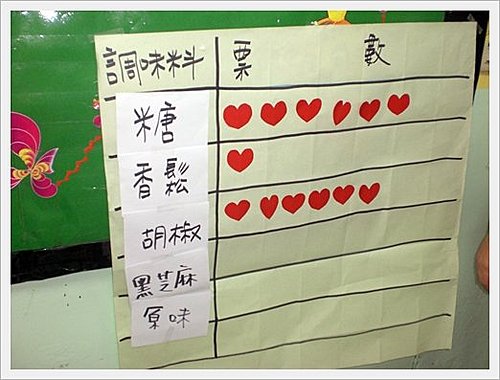 調味料 票 數
糖
香鬆
胡椒
黑芝麻
原味